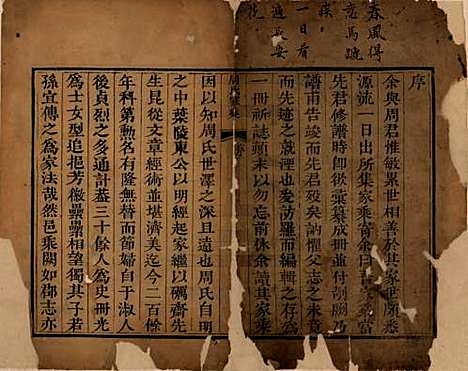 春風得
意馬蹄
疾
一日看
遍長安
花
序
余與周君惟敏累世相善於其家世頗悉
源流一日出所集家乘寄余曰吾家宦
先君修譜時即欲彙纂成冊並付剞劂乃
譜甫告竣而先君歿矣訥懼父志之未竟
而先迹之就湮也爰訪羅而編輯之存為
一冊所誌顛末以勿忘前休余讀其家乘
因以知周氏世澤之深且遠也周氏自明
之中葉陵東公以明經起家繼以礪齋先
生昆從文章經術並堪濟美迄今二百餘
年科第勲名有隆無替而節婦自于淑人
後貞烈之多通計蓋三十餘人為史冊光
為士女型追挹芳徽纍纍相望獨其子若
孫宜傳之為家法哉然邑乘闕如郡志亦